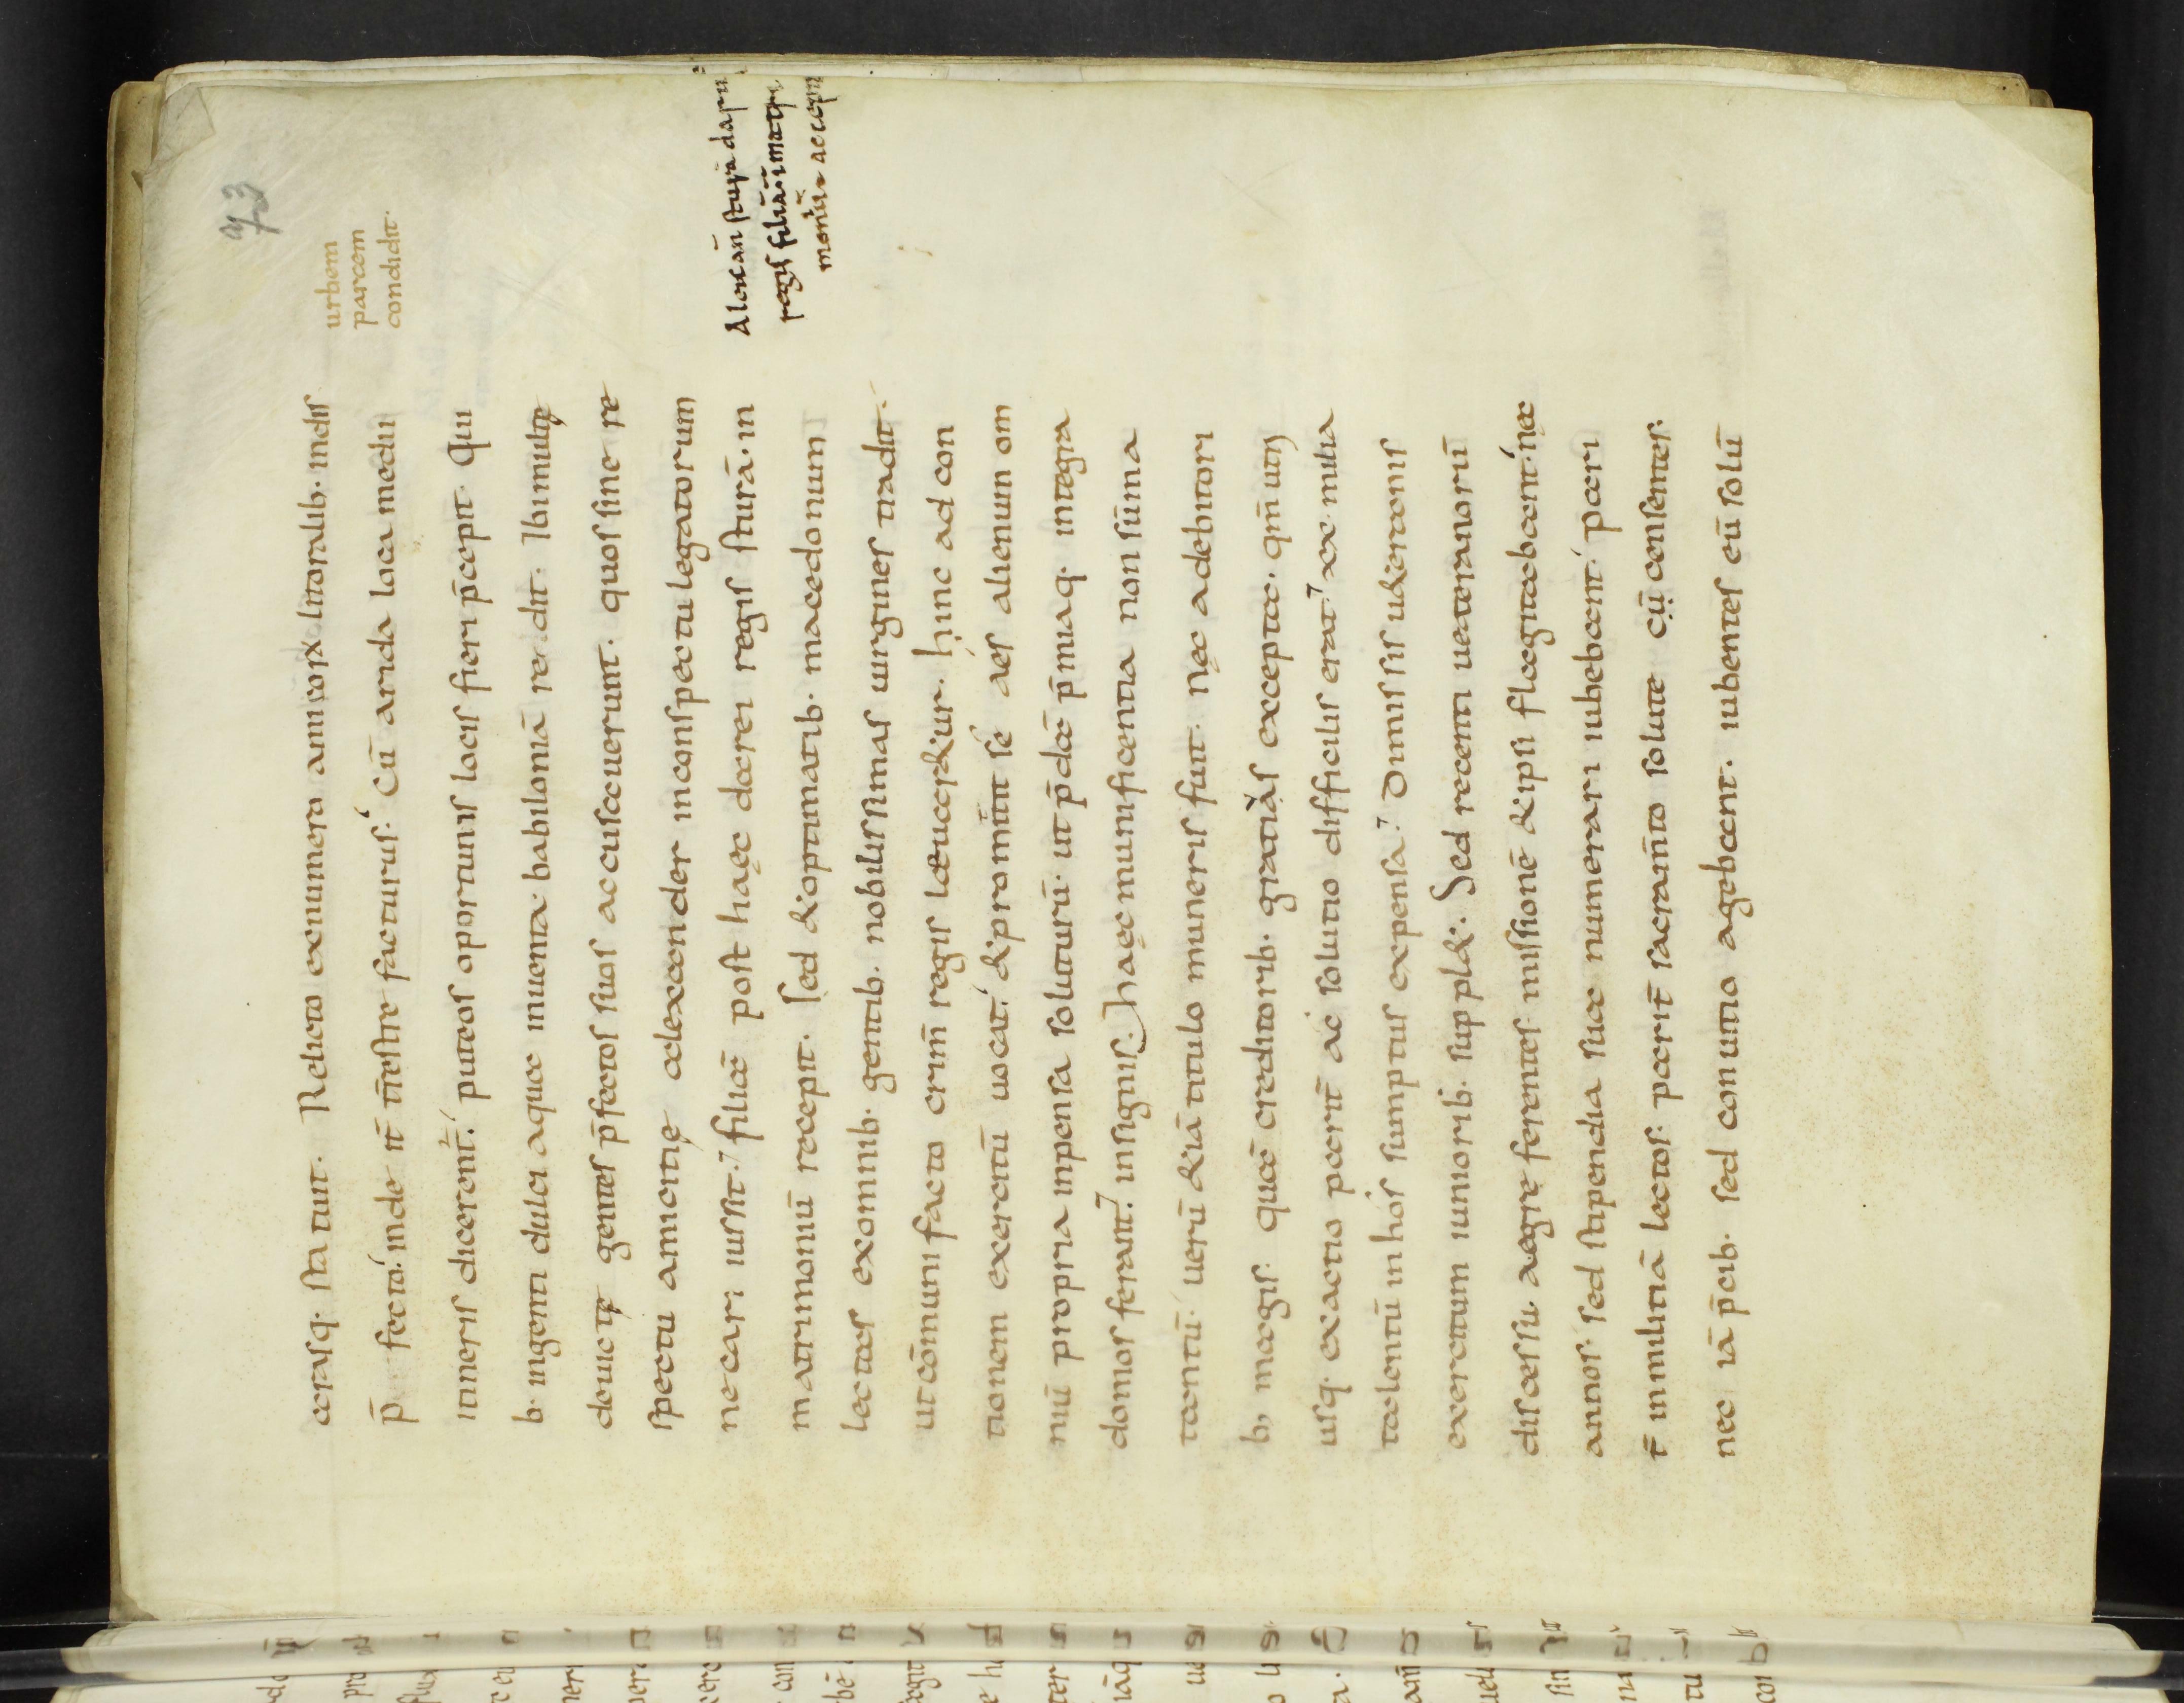 73
urbem
parcem
condidit.
acrasq. statuit. Relicto exnumero amicorx litoralib. indis
p̄ fecto. inde it̄ t̄restre facturus. Cū arida loca medii
itineris dicerent. puteos oportunis locis fieri p̄cepit. Qui
b. ingenti dulci aqua inuenta babiloniā redit. Ibi multę
deuictę gentes p̄fectos suos accusauerunt. quos sine re
spectu amicitię alexander inconspectu legatorum
necari iussit. filiā post haec darei regis sturā. in
matrimoniū recepit. sed &optimatib. macedonum
lectas exomnib. gentib. nobilissimas uirgines tradit.
ut cōmuni facto crim̄ regis leuaret̄ur. hinc ad con
tionem exercitū uocat. &promittit sé aés alienum om
niū propria inpensa soluturū. ut p̄dā p̄miaq. integra
domos ferant. insignis haec munificentia non sūma
tantū. uerū &iā titulo muneris fuit. nec adebitori
b; magis quā creditorib. gratias excepta. qm̄ utris
usq. exactio parit̄ ac solutio difficilis erat. xx milia
talentū in hos sumptus expensa. Dimissis ueteranis
exercitum iuniorib. suppl&. Sed recenti ueteranorū
discessu aegre ferentes missionē &ipsi flagitabant. nec
annos sed stipendia sua numerari iubebant. pari
t̄ in militiā lectos. parit̄ sacram̄to solui cū censentes.
nec iā p̄cib. sed conuitio agebant. iubentes eū solū
Alexan̄ sturā darii
regis filiā in matri
moniū accepit